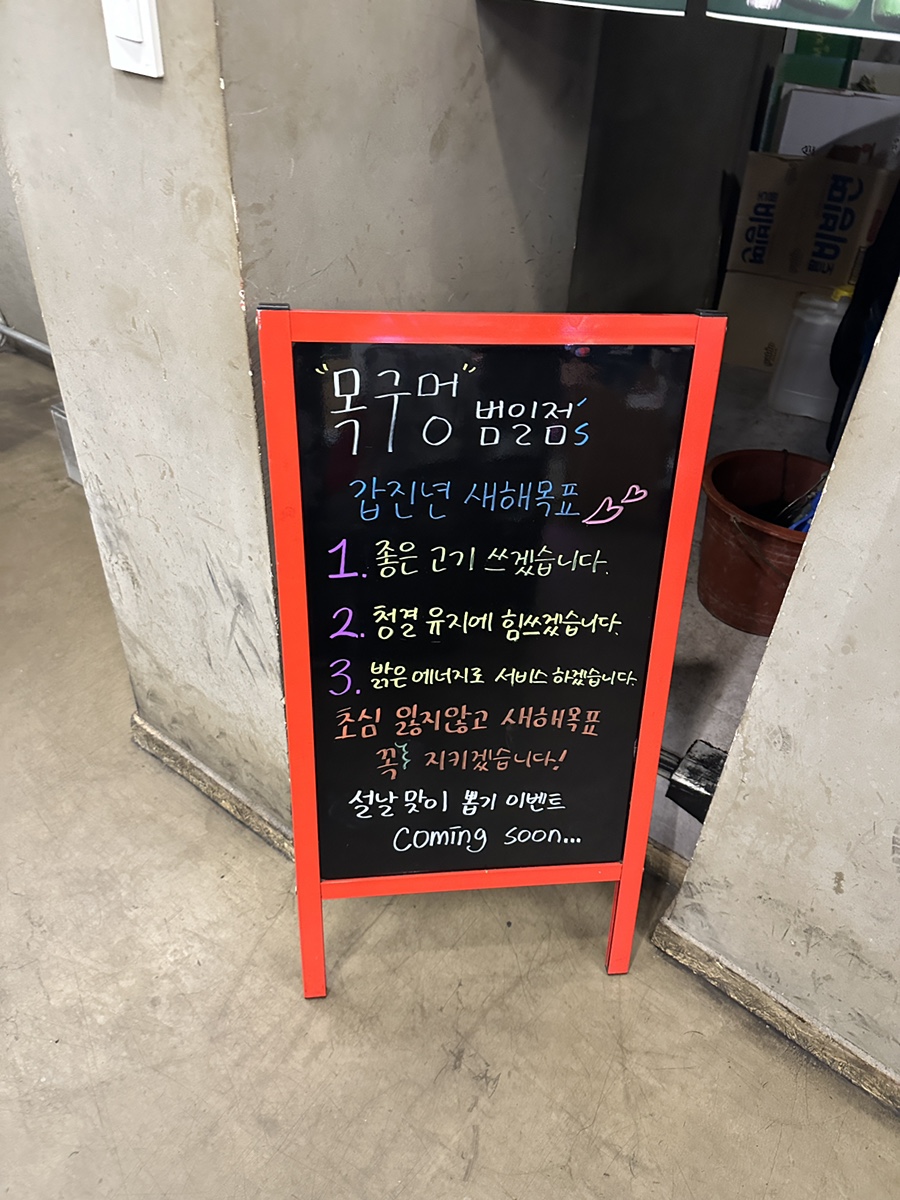 "목구멍" 범일점's
갑진년 새해목표
1. 좋은 고기 쓰겠습니다.
2. 청결 유지에 힘쓰겠습니다.
3. 밝은 에너지로 서비스 하겠습니다.
초심 잃지않고 새해목표
꼭 지키겠습니다!
설날 맞이 뽑기 이벤트
Coming soon...
비빔면
비빔면